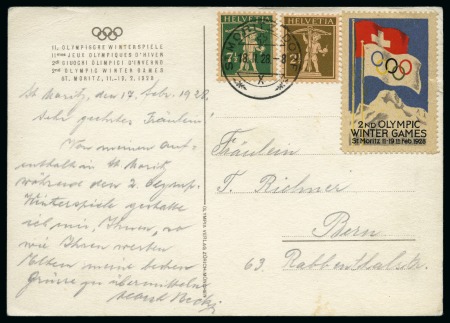 II. OLYMPISCHE WINTERSPIELE
IIèmes JEUX OLYMPIQUES D'HIVER
2di GIUOCHI OLIMPICI D'INVERNO
2ND OLYMPIC WINTER GAMES
ST. MORITZ, 11.-19. 2. 1928
HELVETIA
7½
HELVETIA
2½
ST. MORITZ
18.II.28.-8
X
2ND OLYMPIC
WINTER GAMES
St Moritz 11-19 Feb. 1928
St. Moritz, den 17. Febr. 1928.
Sehr geehrtes Fräulein!
Von meinem Auf-
enthalt in St. Moritz
während den 2. Olymp.
Winterspiele gestatte
ich mir, Ihnen, so
wie Ihren werten
Eltern meine besten
Grüsse zu übermitteln
Fräulein
T. Richner
Bern
63. Rabbenthalstr.
OLYMPIA VERLAG ZÜRICH